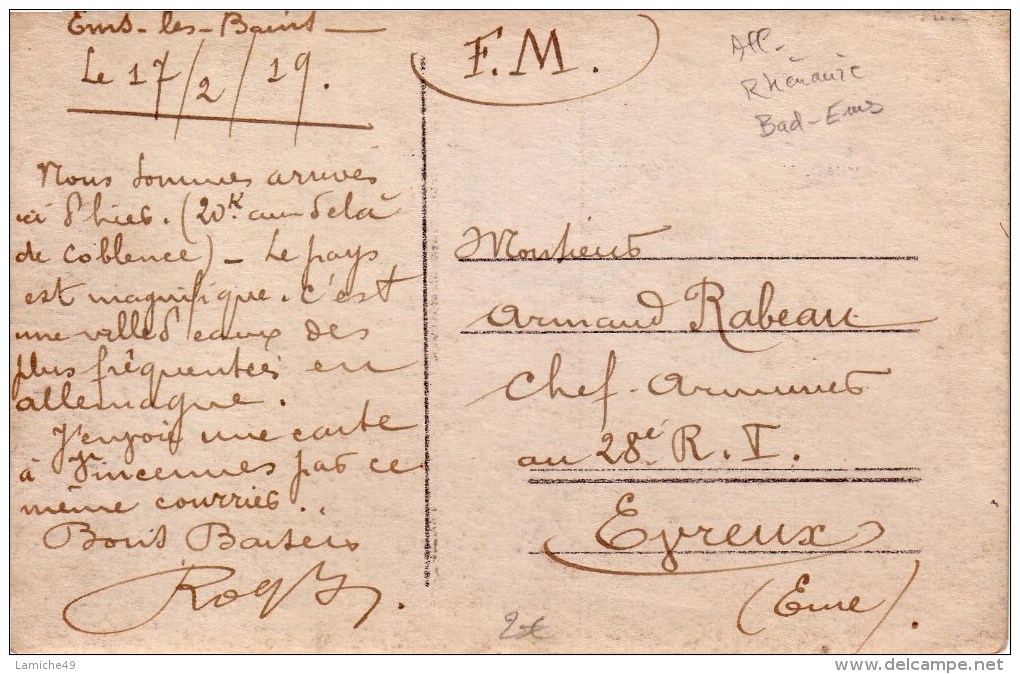 Ems-les-Bains
Le 17/2/19.
Nous sommes arrivés
ici d'hier. (20k. au-delà
de Coblence) - Le pays
est magnifique. C'est
une ville d'eaux des
plus fréquentées en
allemagne.
J'envoie une carte
à Vincennes par ce
même courrier..
Bons Baisers
F.M.
All-
Rhénanie
Bad-Ems
Monsieur
Armand Rabeau
Chef-Armurier
au 28e R.I.
Evreux
(Eure).
2€
Lamiche49
delcampe.net